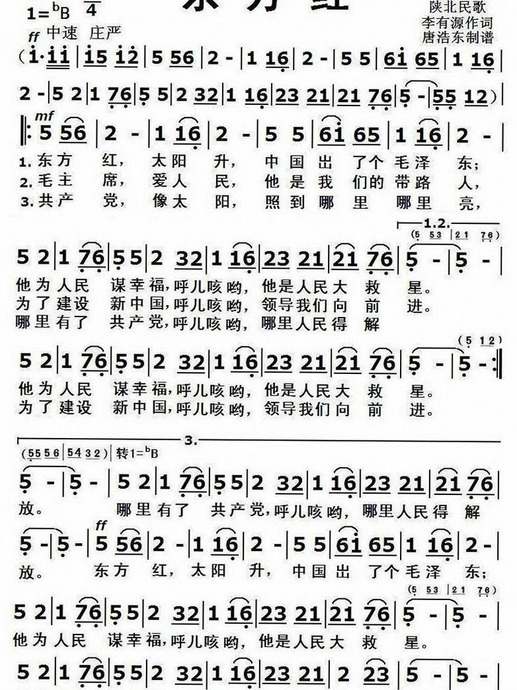 东方红
1=ᵇB 4
陕北民歌
ff 中速 庄严
李有源作词
唐浩东制谱
mf
1. 东方 红, 太阳 升, 中国 出 了个 毛泽 东;
2. 毛主 席, 爱人 民, 他是 我 们的 带路 人,
3. 共产 党, 像太 阳, 照到 哪 里 哪里 亮,
1.2.
5 2|1 76|5 5|2 32|1 16|23 21|21 76|5 -|5 -|
他为 人民 谋幸福,呼儿咳哟, 他是人民大 救 星。
为了 建设 新中国,呼儿咳哟, 领导我们向 前 进。
哪里 有了 共产党,呼儿咳哟, 哪里人民得 解
5 2|1 76|5 5|2 32|1 16|23 21|21 76|5 -|5 -:|
他为 人民 谋幸福,呼儿咳哟, 他是人民大 救 星。
为了 建设 新中国,呼儿咳哟, 领导我们向 前 进。
3.
(55 56|54 32) 转1=ᵇB
5 -|5 -|5 2|1 76|5 5|2 32|1 16|23 21|21 76|
放。 哪里 有了 共产党,呼儿咳哟, 哪里人民得 解
ff
5 -|5 -|5 56|2 -|1 16|2 -|5 5|61 65|1 16|2 -|
放。 东方 红, 太阳 升, 中国 出 了个 毛泽 东;
5 2|1 76|5 5|2 32|1 16|23 21|21 76|5 -|5 -|
他为 人民 谋幸福,呼儿咳哟, 他是人民大 救 星。
5 2|1 76|5 5|2 32|1 16|23 21|2 23|5 -|5 -|